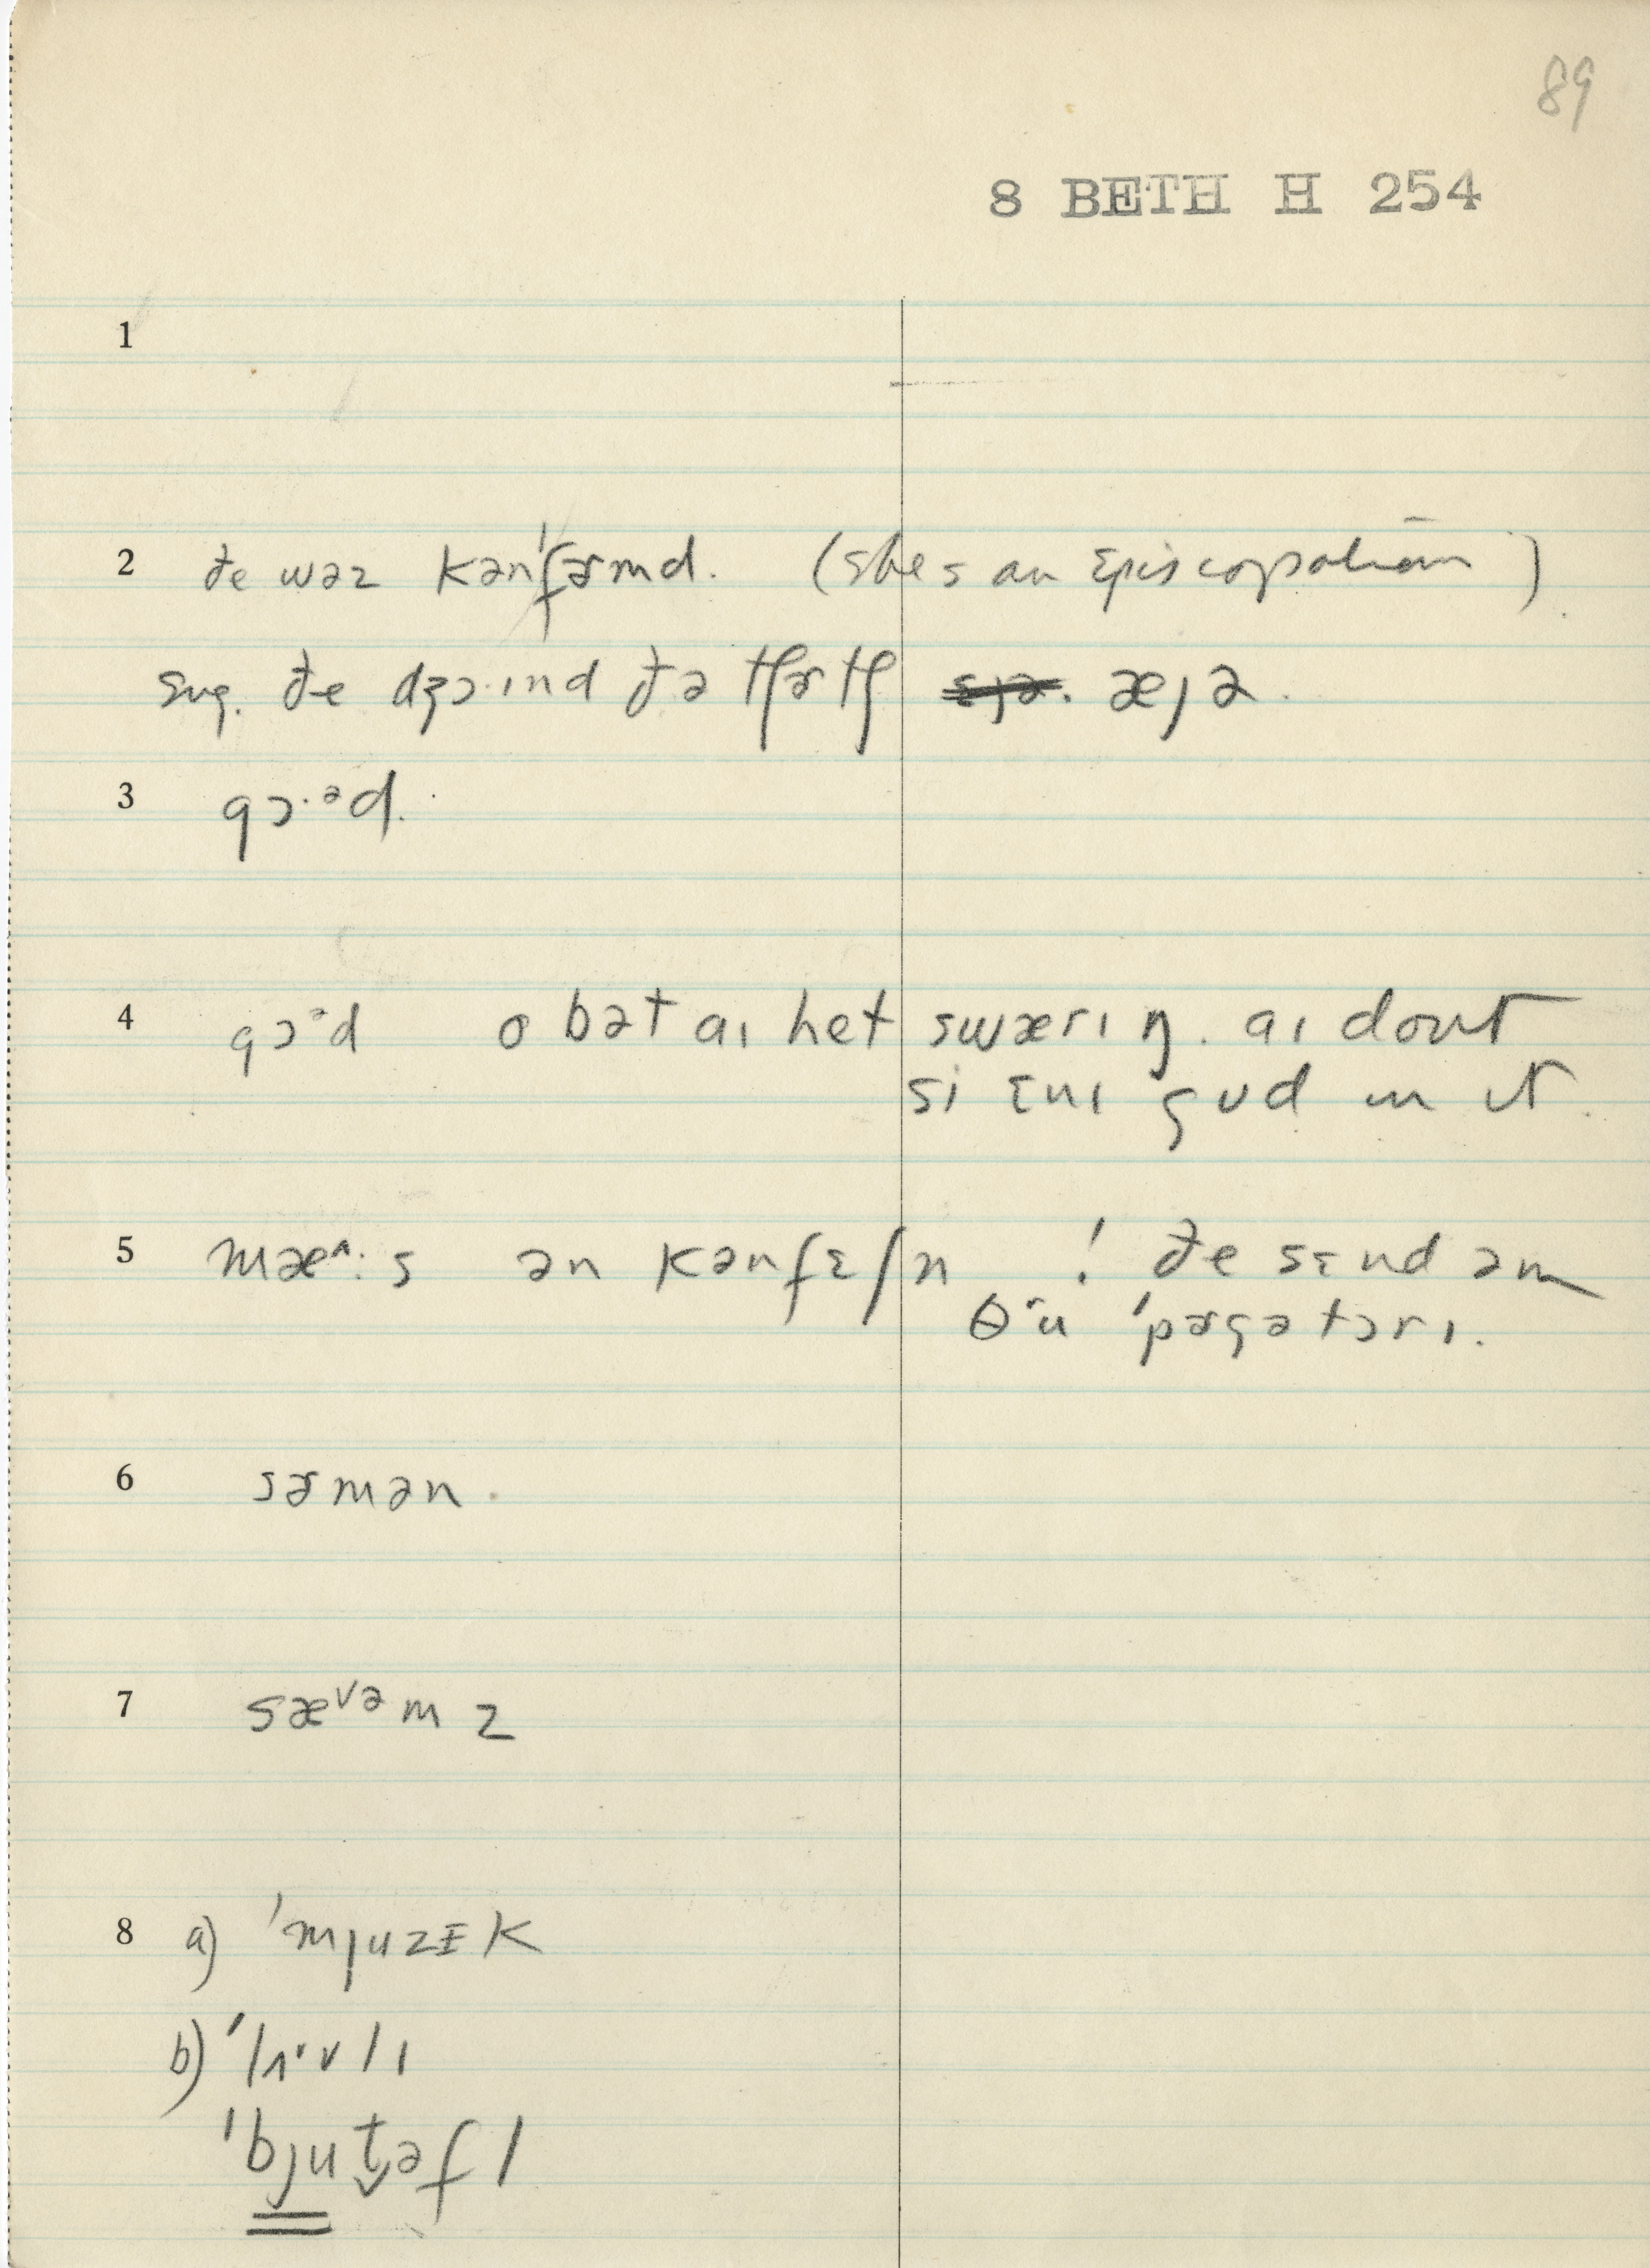 89
8 BETH H 254
1
2 ðe wəz kən'fɚmd. (she's an Episcopalian)
sug. ðe dʒɔ·ɪnd ðə tʃɚtʃ æjə.
3 gɔ·ᵊd.
4 gɔᵊd o bət aɪ het swærɪŋ. aɪ dount
si ɛnɪ gud ɪn ɪt.
5 mæ^:s ən kənfɛʃn ! ðe sɛnd əm
θru 'pɚgətɔrɪ.
6 sɚmən.
7 sæᵛᵊmz
8 a) 'mjuzɪk
b) 'lʌˑvlɪ
'bjut̬əfl